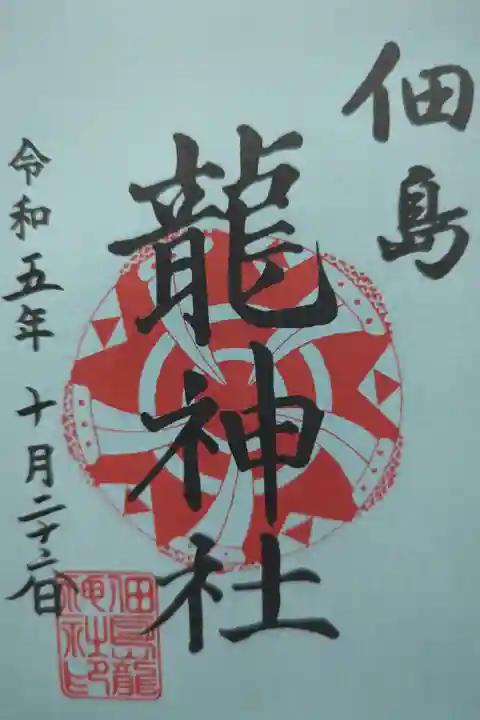 佃島
龍神社
令和五年 十月二十六日
佃島龍
神社印